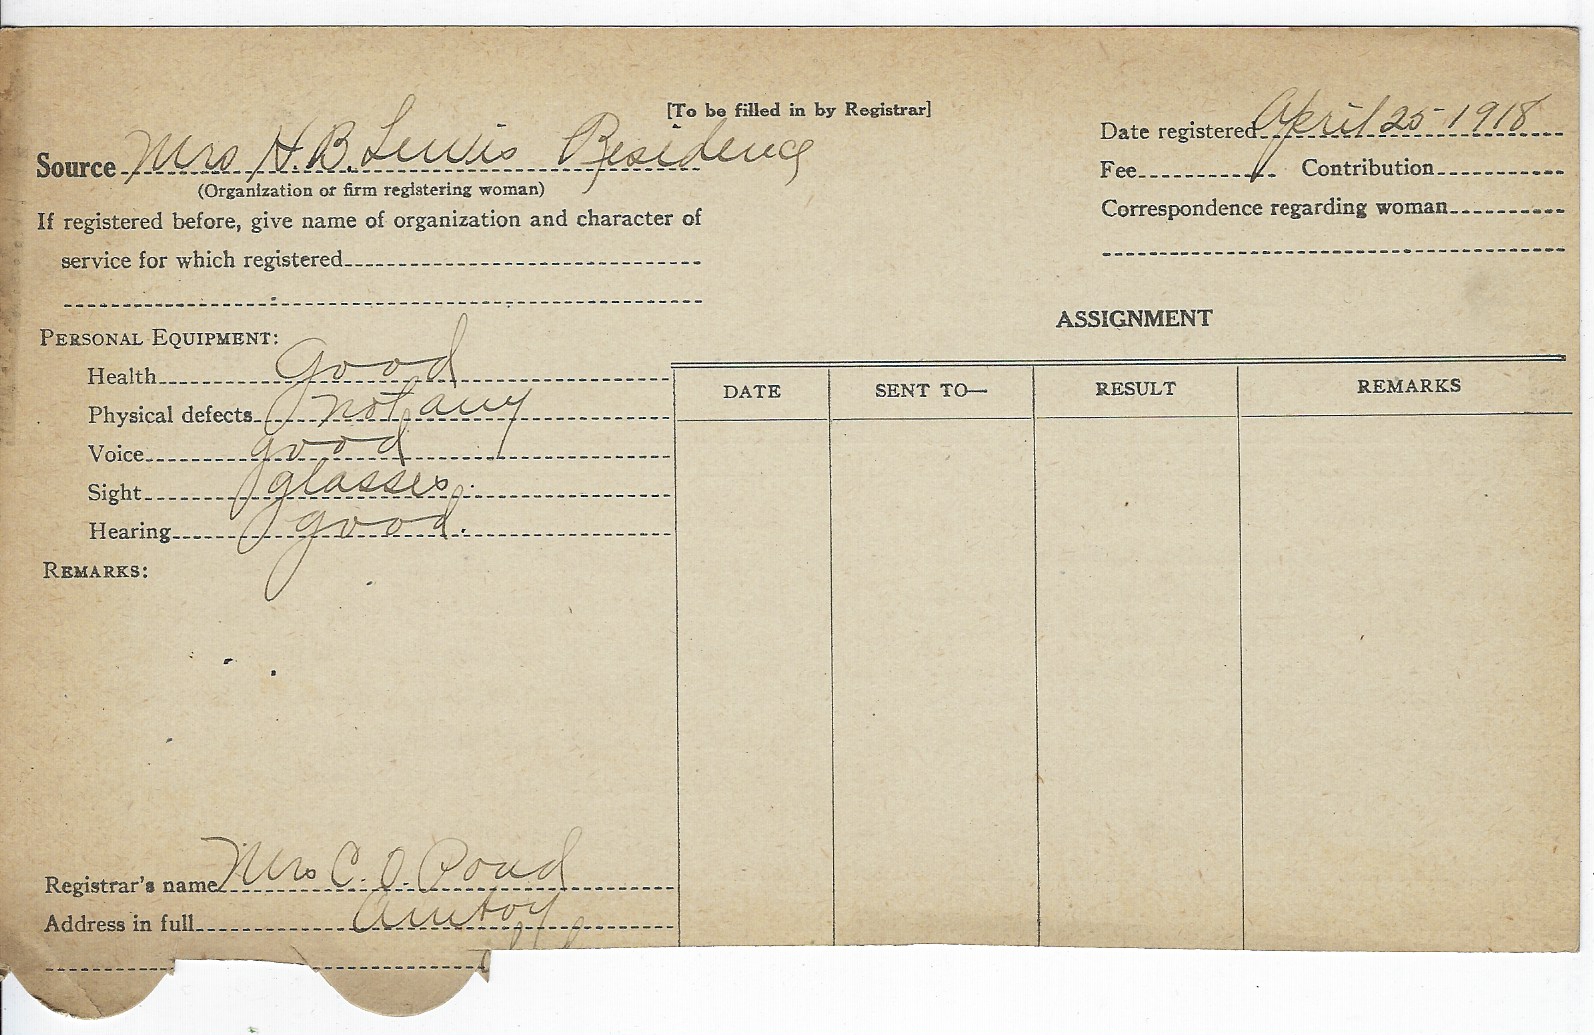 [To be filled in by Registrar]
Source Mrs H.B. Lewis Residence
(Organization or firm registering woman)
If registered before, give name of organization and character of
service for which registered
Date registered April 25 1918
Fee Contribution
Correspondence regarding woman
PERSONAL EQUIPMENT:
Health good
Physical defects not any
Voice good
Sight glasses.
Hearing good.
REMARKS:
ASSIGNMENT
DATE SENT TO— RESULT REMARKS
Registrar's name Mrs C. O. Pond
Address in full